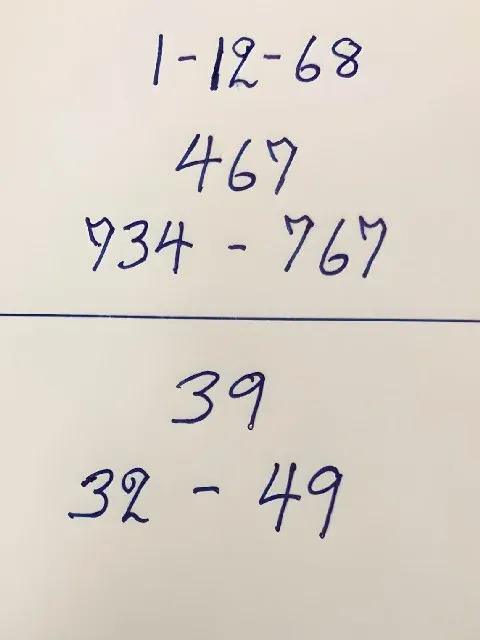 1-12-68
467
734 - 767
39
32 - 49